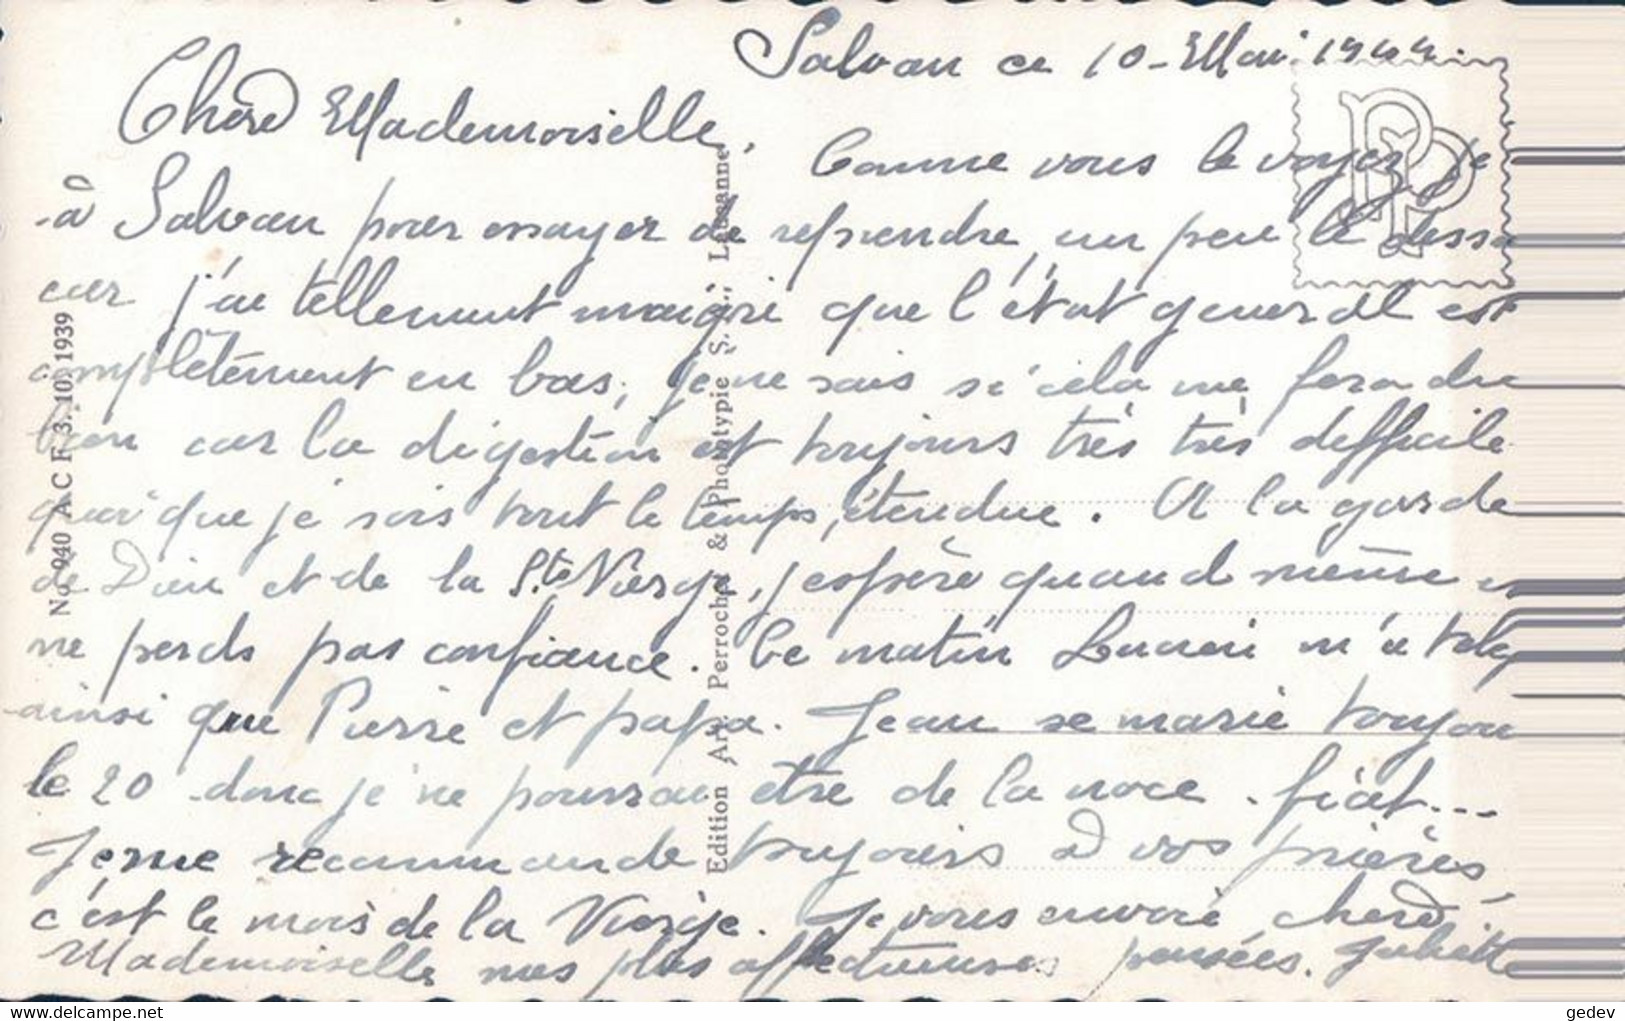 Salvan ce 10 - Mai. 1944.
Chère Mademoiselle,
Comme vous le voyez je
à Salvan pour essayer de reprendre un peu le dessu
car j'ai tellement maigri que l'état général est
complètement en bas, je ne sais si cela me fera du
bien car la digestion est toujours très très difficile
quoi que je sois tout le temps étendue. A la garde
de Dieu et de la Ste Vierge, j'espère quand même
ne perds pas confiance. Ce matin m'a
ainsi que Pierre et papa. Jean se marie toujou
le 20 donc je ne pourrai être de la noce. fiat...
Je me recommande toujours à vos prières,
c'est le mois de la Vierge. Je vous envoie chère
Mademoiselle mes plus affectueuses pensées. Juliette
No 940 A C F 3. 10. 1939
Edition Art. Perrochet & Phototypie S. A., Lausanne
PP
gedev